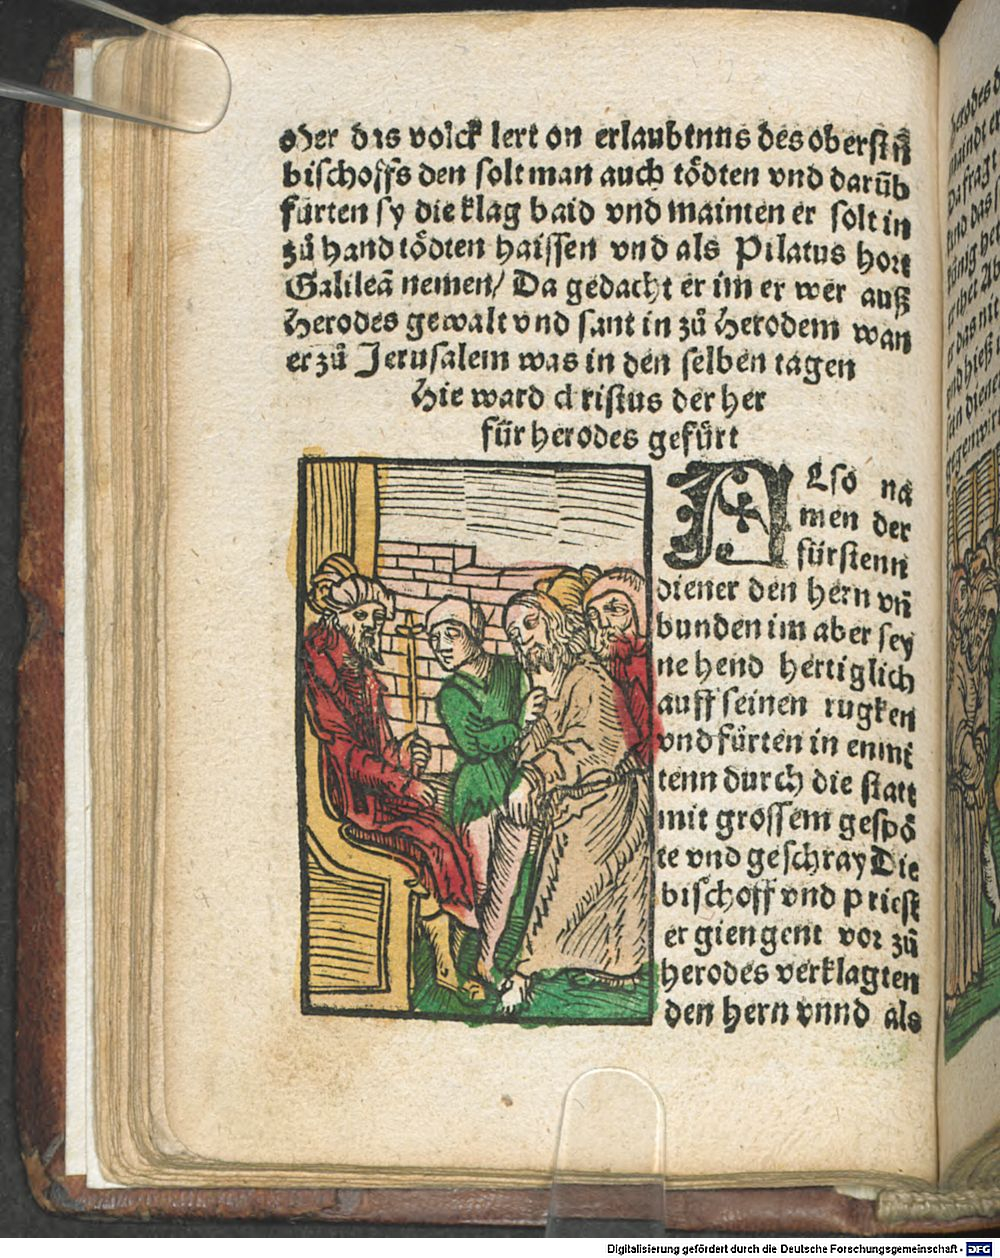 oder das volck lert on erlaubtnus des oberstn̄
bischoffs den solt man auch tödten vnd darūb
fürten sy die klag baid vnd mainten er solt in
zů hand tödten haissen vnd als Pilatus hort
Galileā nemen/ Da gedacht er im er wer auß
Herodes gewalt vnd sant in zů Herodem wan
er zů Jerusalem was in den selben tagen
Hie ward christus der her
für herodes gefürt
ALso na
men der
fürstenn
diener den hern vn̄
bunden im aber sey
ne hend hertiglich
auff seinen rugken
vnd fürten in enmt
tenn durch die statt
mit grossem gespö
te vnd geschray Die
bischoff vnd priest
er giengent vor zů
herodes verklagten
den hern vnnd als
Digitalisierung gefördert durch die Deutsche Forschungsgemeinschaft - DFG